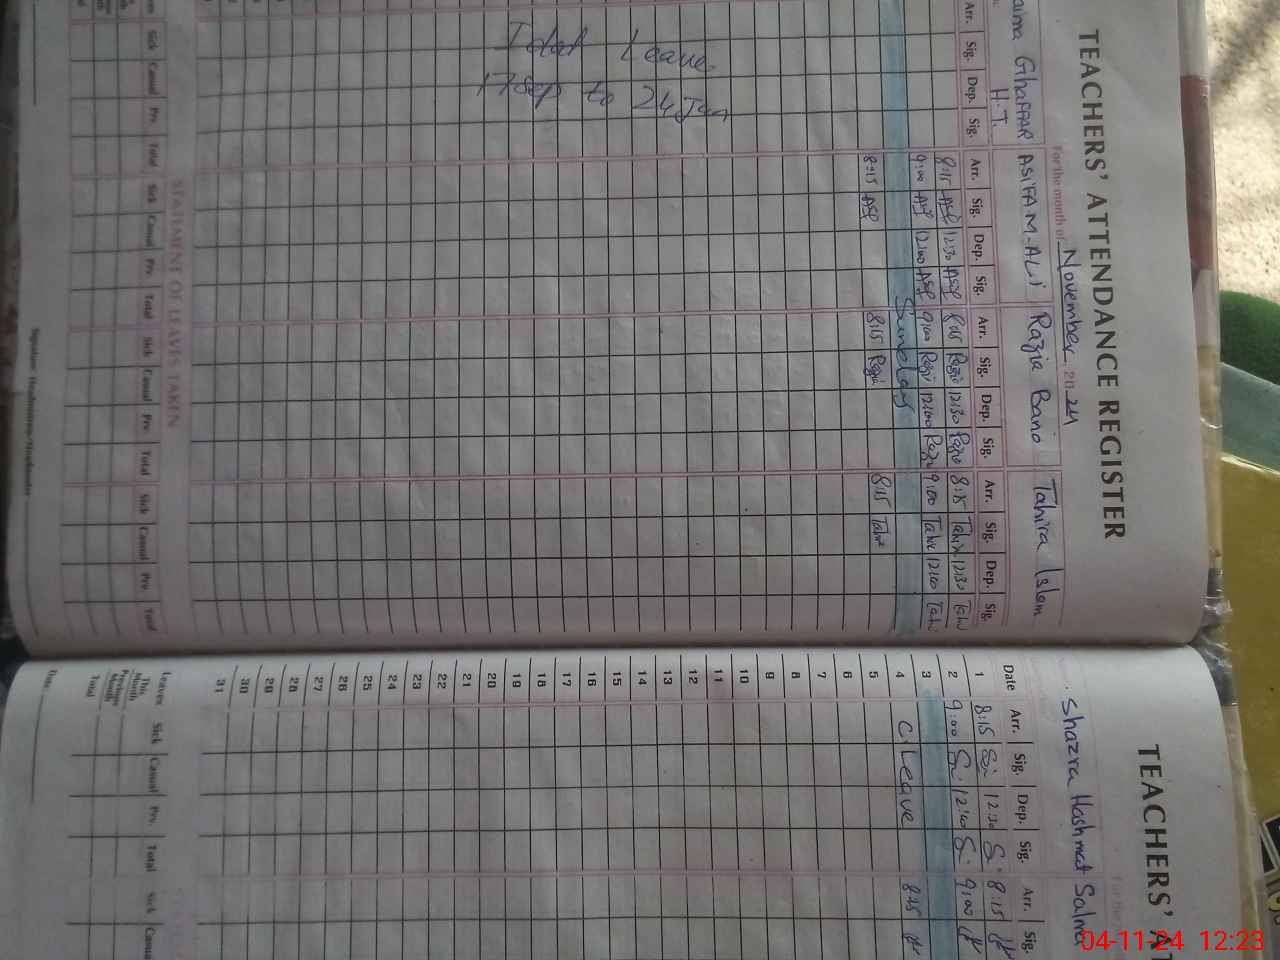 TEACHERS' ATTENDANCE REGISTER
For the month of November 2024
Ghaffar H.T. ASIFA M-ALI Razia Bano Tahira Islam
Arr. Sig. Dep. Sig. Arr. Sig. Dep. Sig. Arr. Sig. Dep. Sig. Arr. Sig. Dep. Sig.
8:15 12:30 8:15 Razia 12:30 Razia 8:15 12:30
9:00 12:00 9:00 Razia 12:00 Razia 9:00 12:00
Sunday
8:15 8:15 Razia 8:15
Total Leave
17 Sep to 24 Jan
STATEMENT OF LEAVES TAKEN
Sick Casual Prv. Total Sick Casual Prv. Total Sick Casual Prv Total Sick Casual Prv Total
Signature Headmistress/Headmaster
TEACHERS' AT
Shazra Hashmat Salma
Date Arr. Sig. Dep. Sig. Arr. Sig.
1 8:15 12:30 8:15
2 9:00 12:00 9:00
3
4 C Leave 8:15
5
6
7
8
9
10
11
12
13
14
15
16
17
18
19
20
21
22
23
24
25
26
27
28
29
30
31
Leaves Sick Casual Prv. Total Sick Casua
This Month
Previous Month
Total
Date
04-11-24 12:23